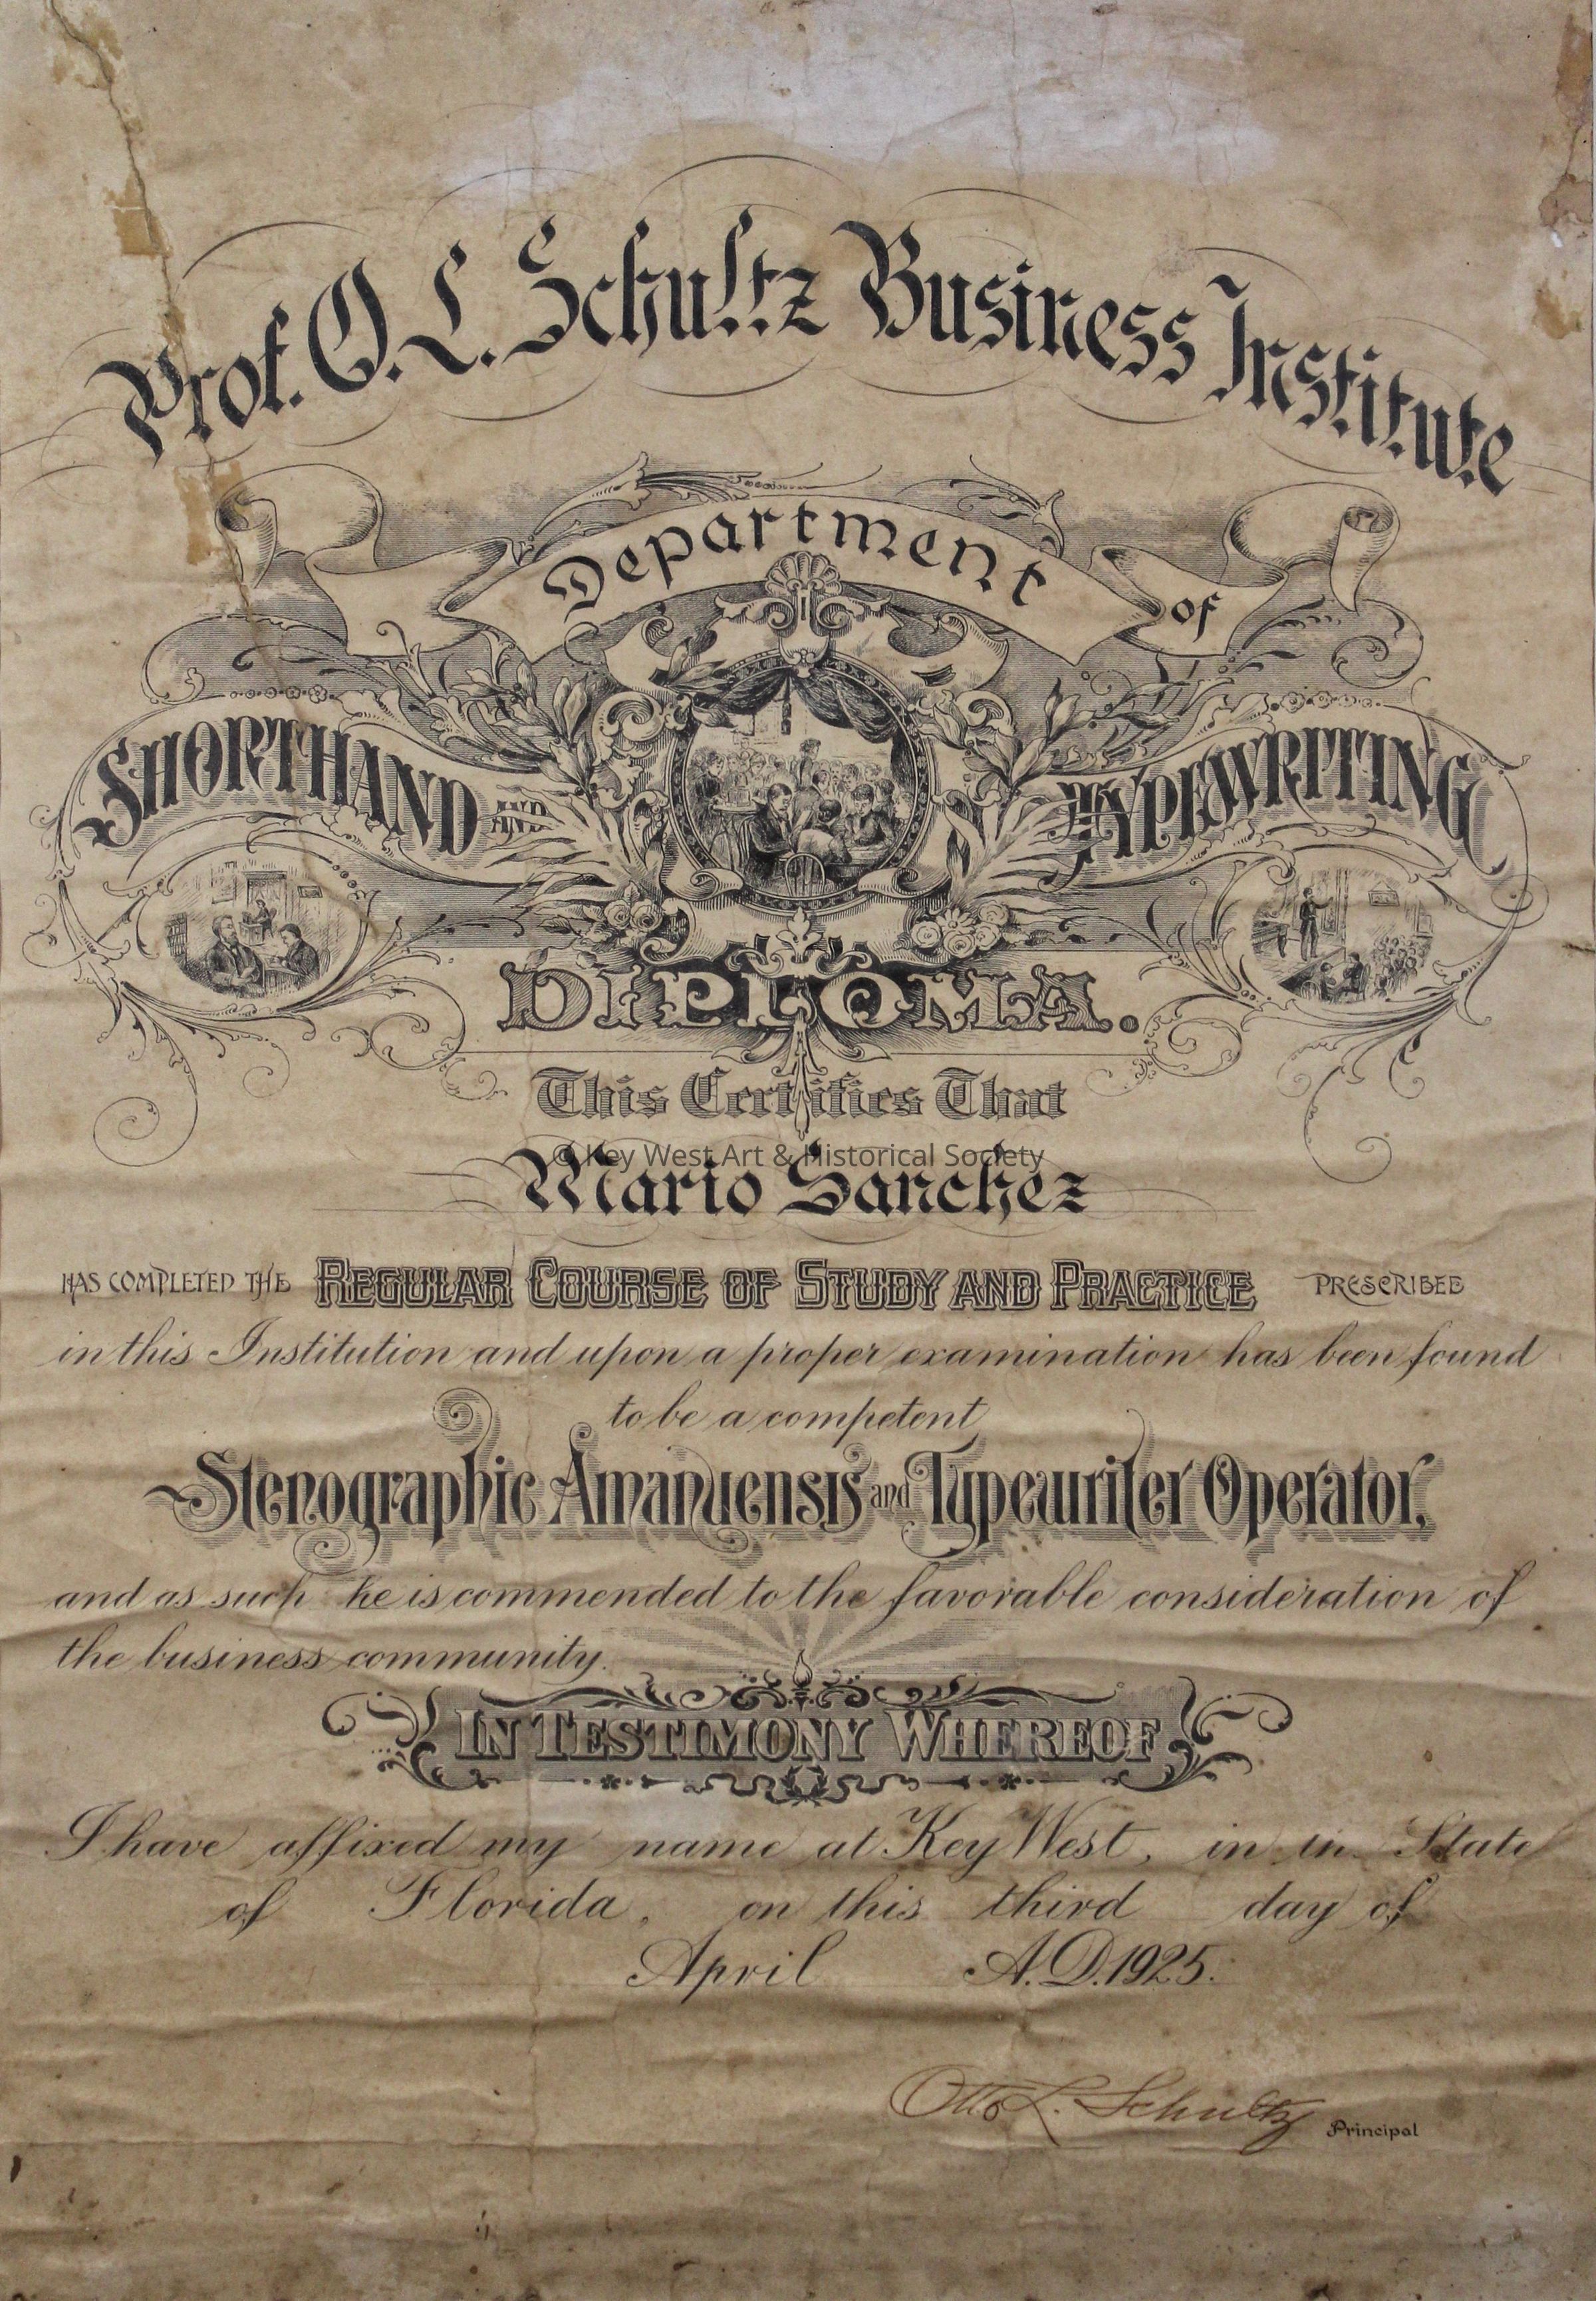 Prof. O. L. Schultz Business Institute
Department of
SHORTHAND AND TYPEWRITING
DIPLOMA.
This Certifies That
© Key West Art & Historical Society
Mario Sanchez
HAS COMPLETED THE REGULAR COURSE OF STUDY AND PRACTICE PRESCRIBED
in this Institution and upon a proper examination has been found
to be a competent
Stenographic Amanuensis and Typewriter Operator,
and as such he is commended to the favorable consideration of
the business community.
IN TESTIMONY WHEREOF
I have affixed my name at Key West, in in State
of Florida, on this third day of
April A.D. 1925.
Otto L. Schultz Principal